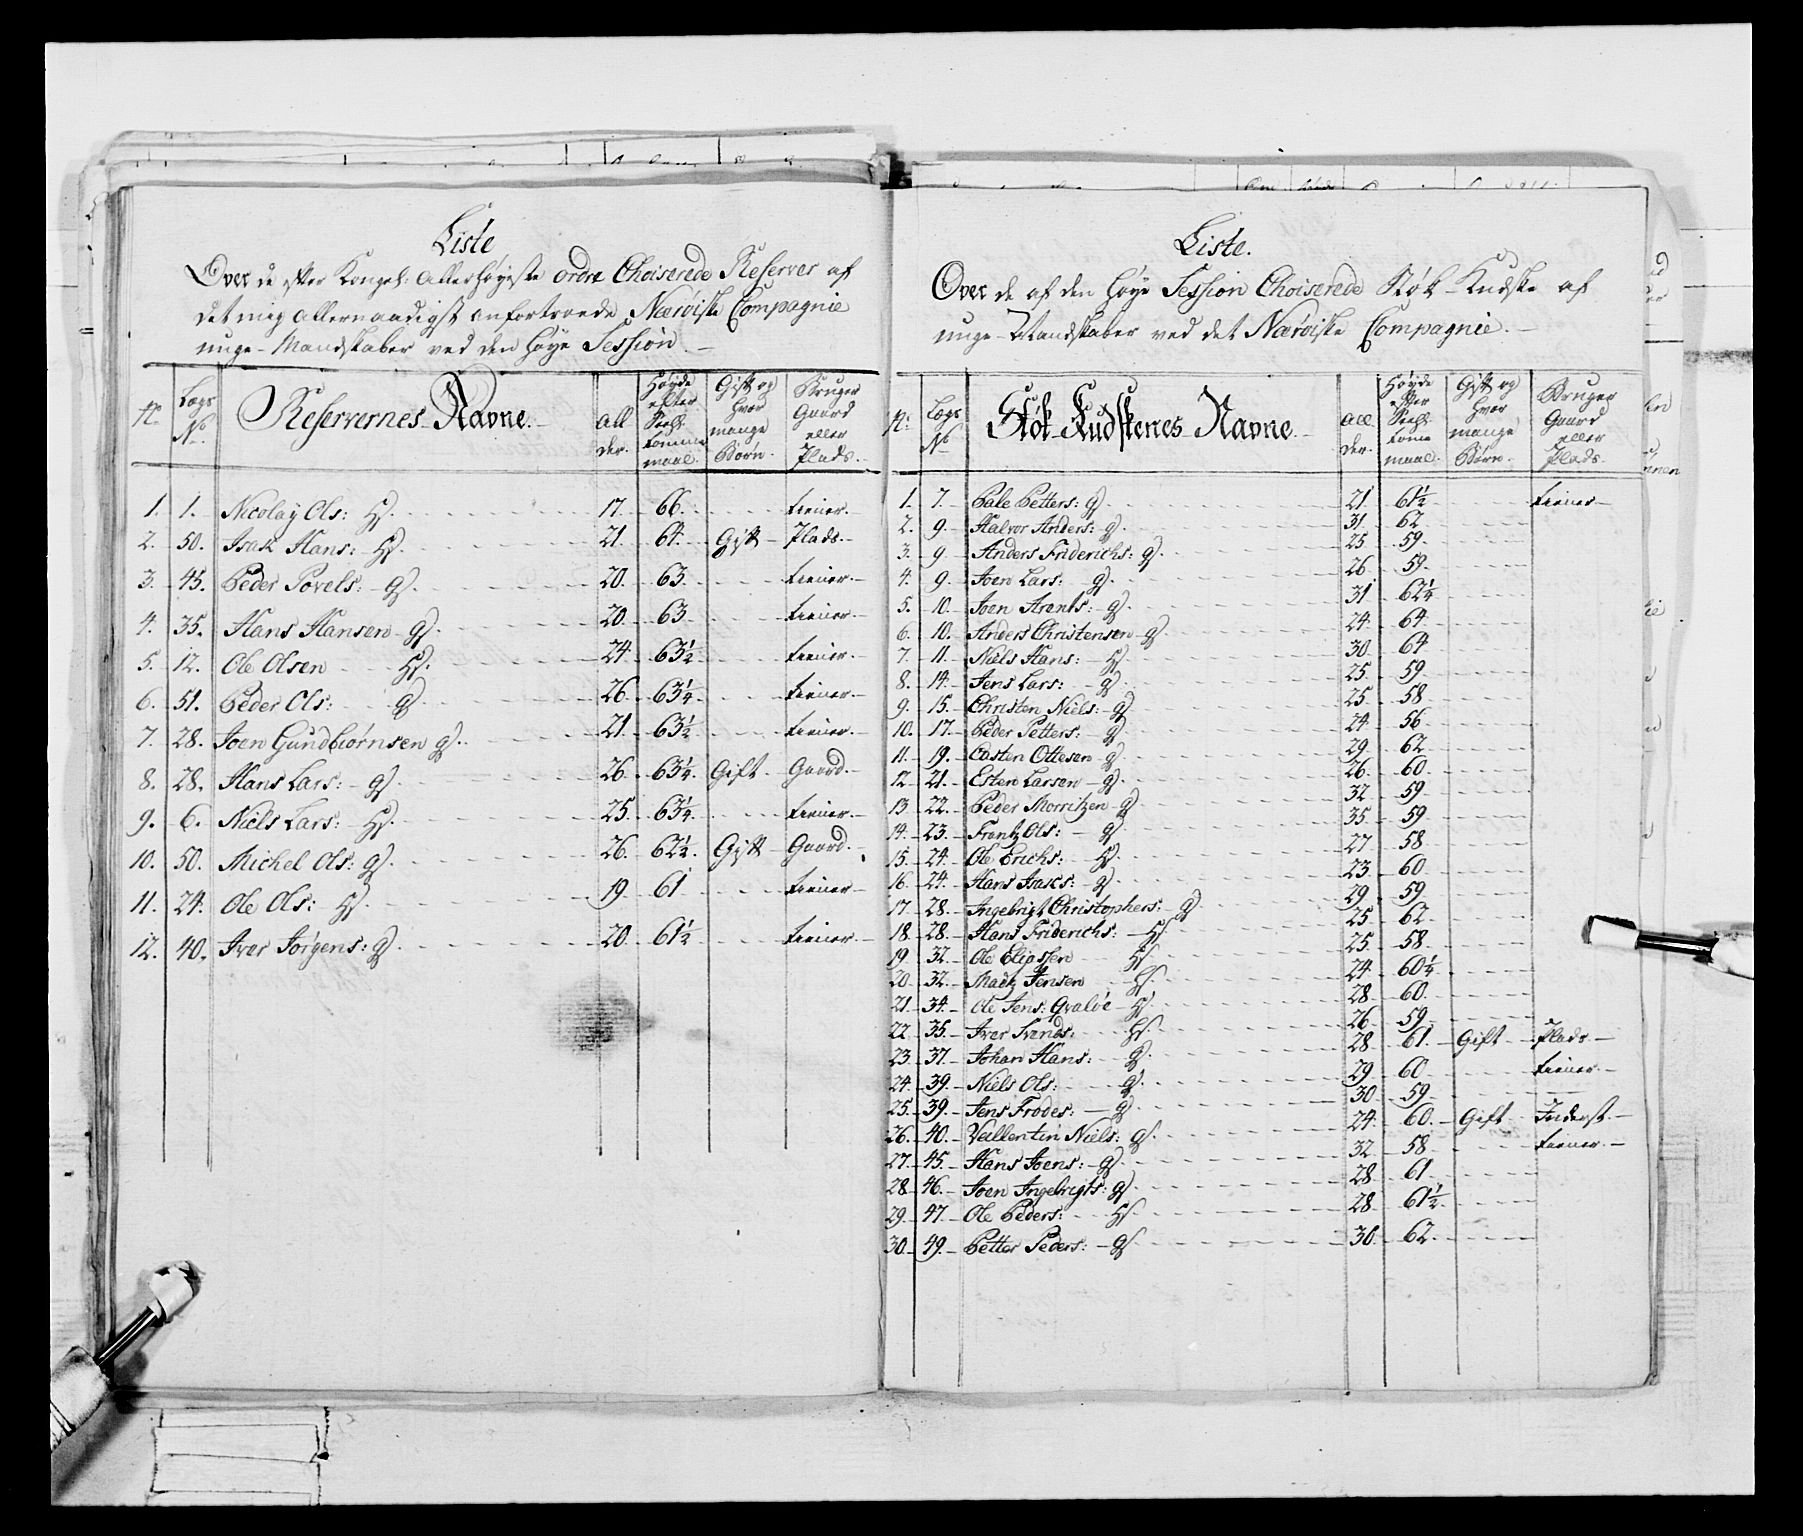 Liste
Over de efter Kongel: Allerhøyeste ordre Choiserede Reserver af
det mig allernaadigst anfortroede Nærøiske Compagnie
unge-Mandskaber ved den høye Session. -
No. Lægs No. Reservernes Navne. All der. Høyde efter Tomme maal. Gift og hvor mange Børn. Bruger Gaard eller Plads.
1. 1. Nicolay Ols: Hs. 17. 66. tiener.
2. 50. Isak Hans: Hs. 21. 64. Gift Plads.
3. 45. Peder Povels: gs. 20. 63. tiener.
4. 35. Hans Hansen gs. 20. 63 tiener.
5. 12. Ole Olsen Hs. 24. 63½ tiener.
6. 51. Peder Ols: gs. 26. 63¼ tiener.
7. 28. Joen Gundbiørnsen gs. 21. 63½ tiener.
8. 28. Hans Lars: gs. 26. 63¼. Gift Gaard.
9. 6. Niels Lars: Hs. 25. 63¼ tiener.
10. 50. Michel Ols: gs. 26. 62½. Gift Gaard.
11. 24. Ole Ols: Hs. 19 61 tiener.
12. 40. Iver Jørgens: gs. 20. 61½ tiener.
Liste.
Over de af den høye Session Choiserede Støk-Kudske af
unge-Mandskaber ved det Nærøiske Compagnie. -
No. Lægs No Støk-Kudskenes Navne. All der. Høyde efter Tome maal. Gift og hvor mange Børn. Bruger Gaard eller Plads.
1. 7. Pale Petters: gs 21. 61½ tiener
2. 9. Halvor Anders: gs. 31. 62
3. 9 Anders Friderichs: gs. 25 59.
4. 9. Joen Lars: gs. 26 59.
5. 10. Joen Arents: gs. 31 62¼
6. 10. Anders Christensen gs. 24. 64
7. 11. Niels Hans: Hs 30. 64
8. 14. Jens Lars: gs 25. 59
9. 15. Christen Niels: gs 25. 58
10. 17. Peder Petters: gs 24. 56
11. 19. Costen Ottesen gs 29. 62
12 21. Esten Larsen gs. 26. 60
13 22. Peder Morritzen gs 32 59
14. 23. Frentz Ols: gs 35 59
15. 24. Ole Erichs: Hs. 27 58
16. 24. Hans Isacs: gs. 23. 60
17 28. Ingebrigt Christophers: gs. 29. 59
18. 28. Hans Friderichs: Hs 25 62
19. 32. Ole Eliassen Hs. 25. 58
20 32. Matz Jensen Hs. 24. 60¼
21. 34. Ole Jens: Gvaløe Hs. 28. 60.
22. 35. Iver Svends: Hs. 26. 59
23. 37. Johan Hans: gs. 28 61. Gift Plads
24. 39. Niels Ols: gs. 29 60 tiener.
25. 39. Jens Frodes: gs. 30. 59
26. 40. Vallentin Niels: gs. 24. 60. Gift Inderst.
27. 45. Hans Joens: gs. 32 58 tiener.
28. 46. Joen Ingebrigts: gs. 28 61
29. 47. Ole Peders: Hs. 28 61½
30. 49. Petter Peders: gs. 30. 62.